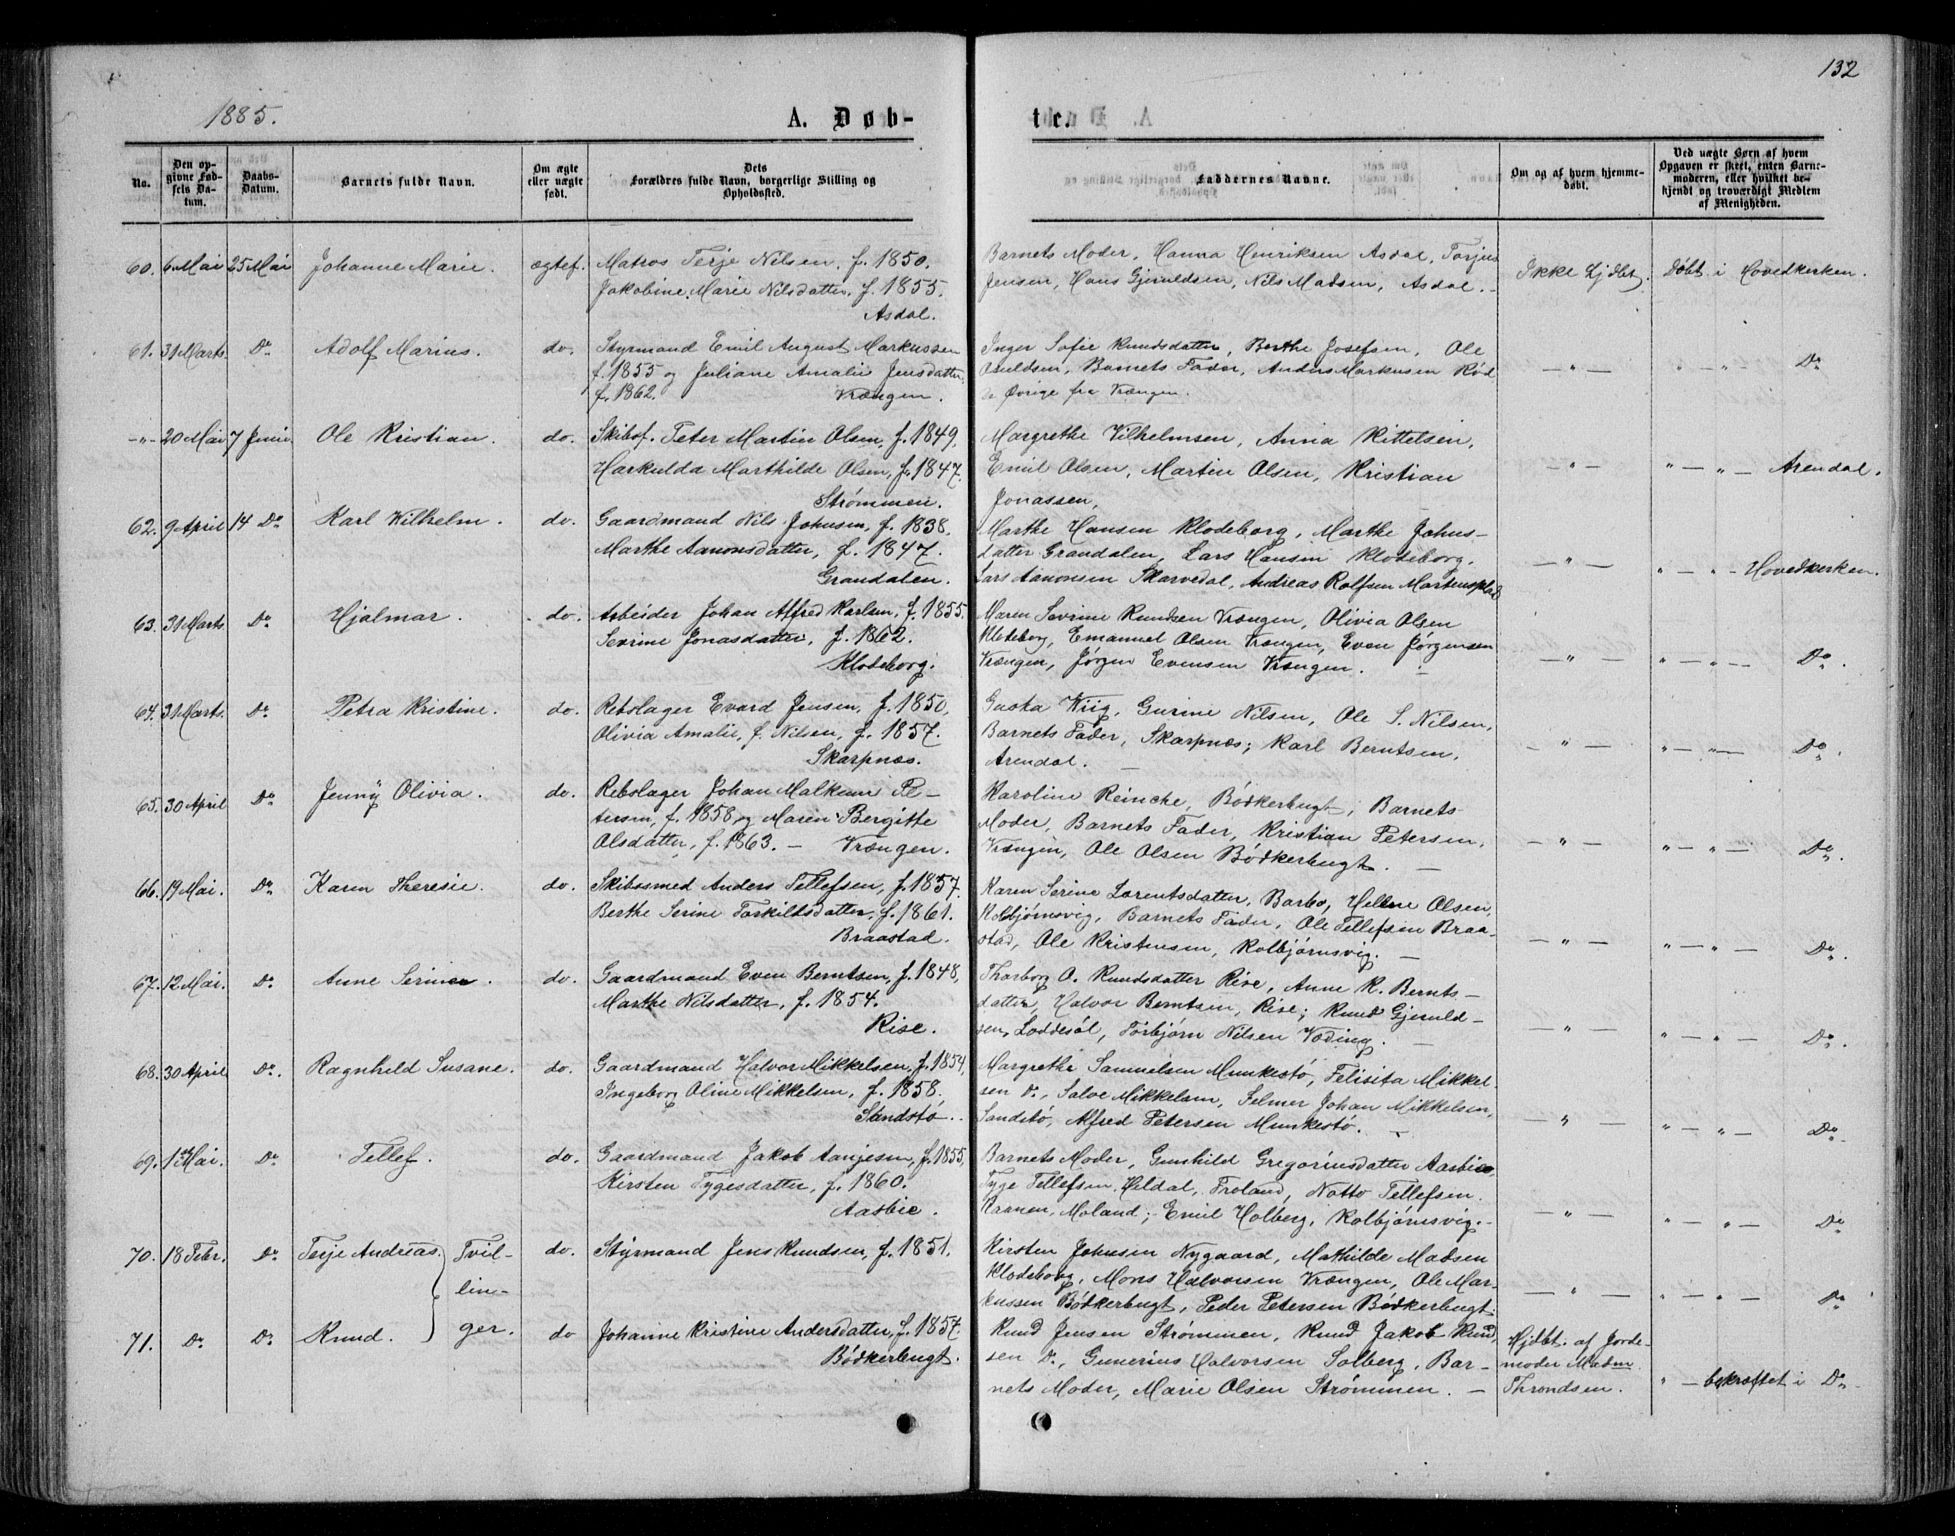 132
1885.
A. Døb-
te.
No.
Den op-
givne Fød-
sels Da-
tum.
Daabs-
Datum.
Barnets fulde Navn.
Om ægte
eller uægte
født.
Dets
Forældres fulde Navn, borgerlige Stilling og
Opholdssted.
Faddernes Navne.
Om og af hvem hjemme-
døbt.
Ved uægte Børn af hvem
Opgaven er skeet, enten Barne-
moderen, eller hvilket be-
kjendt og troværdigt Medlem
af Menigheden.
60. 6 Mai 25 Mai Johanne Marie. ægtef. Matros Terje Nilsen, f. 1850.
Jakobine Marie Nilsdatter, f. 1855.
Asdal.
Barnets Moder, Hanna Henriksen Asdal, Torjus
Jensen, Hans Gjeruldsen, Nils Madsen, Asdal.
Ikke Hjdbt. Døbt i Hovedkerken.
61. 31 Marts. Do Adolf Marius. do. Styrmand Emil August Markussen
f. 1855 og Juliane Amalie Jensdatter
f. 1862. Vrængen.
Inger Sofie Knudsdatter, Berthe Josefsen, Ole
Barnets Fader, Anders Markusen Rød
Øvrige fra Vrængen.
— " — " — " — Do
—"— 20 Mai 7 Juni Ole Kristian. do. Skibsf. Peter Martin Olsen, f. 1849.
Harkulda Marthilde Olsen, f. 1847.
Strømmen.
Margrethe Vilhelmsen, Anna Kittelsen,
Emil Olsen, Martin Olsen, Kristian
Jonassen,
— " — " — " — Arendal.
62. 9 April 14 Do Karl Vilhelm. do. Gaardmand Nils Johnsen, f. 1838.
Marthe Aanonsdatter, f. 1847.
Grandalen.
Marthe Hansen Klodeborg, Marthe Johns-
datter Grandalen, Lars Hansen Klodeborg,
Lars Aanonsen Skarvedal, Andreas Rolfsen Martensplad
— " — " — " — Hovedkerken.
63. 31 Marts. Do Hjalmar. do. Arbeider Johan Alfred Karlsen, f. 1855.
Sevrine Jonasdatter, f. 1862.
Klodeborg.
Maren Sevrine Knudsen Vrængen, Olivia Olsen
Klodeborg, Emanuel Olsen Vrængen, Even Jørgensen
Vrængen, Jørgen Evensen Vrængen.
— " — " — " — Do.
64. 31 Marts. Do. Petra Kristine. do. Rebslager Evard Jensen, f. 1850,
Olivia Amalie, f. Nilsen, f. 1857.
Skarpnæs.
Gusta Viig, Gurine Nilsen, Ole S. Nilsen,
Barnets Fader, Skarpnæs; Karl Berntsen,
Arendal.
— " — " — " — Do.
65. 30 April Do Jenny Olivia. do. Rebslager Johan Malkum Pe-
tersen, f. 1858, og Maren Bergitte
Olsdatter, f. 1863. — Vrængen.
Karoline Reincke, Bødkerbugt, Barnets
Moder, Barnets Fader, Kristian Petersen,
Vrængen, Ole Olsen Bødkerbugt.
— " — " — " — Do.
66. 19 Mai. Do. Karen Theresie. do. Skibssmed Anders Tellefsen, f. 1857.
Berthe Serine Torkildsdatter, f. 1861.
Braastad.
Karen Serine Lorentsdatter, Barbo, Hellene Olsen,
Kolbjørnsvig, Barnets Fader, Ole Tellefsen Braa-
stad, Ole Kristensen, Kolbjørnsvig.
— " — " — " — Do.
67. 12 Mai. Do. Anne Serine. do. Gaardmand Even Berntsen, f. 1848,
Marthe Nilsdatter, f. 1854.
Rise.
Tharborg O. Knudsdatter Rise, Anne K. Bernts-
datter, Halvor Berntsen, Rise; Knud Gjeruld-
sen, Loddesøl, Torbjørn Nilsen Vøding.
— " — " — " — Do.
68. 30 April Do. Ragnhild Susane. do. Gaardmand Halvor Mikkelsen, f. 1854,
Ingeborg Oline Mikkelsen, f. 1858.
Sandstø.
Margrethe Samuelsen Munkestø, Felisita Mikkel-
sen Do., Salve Mikkelsen, Selmer Johan Mikkelsen,
Sandstø, Alfred Petersen Munkestø.
— " — " — " — Do.
69. 1ste Mai. Do. Tellef. do. Gaardmand Jakob Aanjesen, f. 1855,
Kirsten Tygesdatter, f. 1860.
Aasbie.
Barnets Moder, Gunhild Gregoriusdatter Aasbie,
Tyge Tellefsen Heldal, Froland, Notto Tellefsen
Kranen, Moland; Emil Holberg, Kolbjørnsvig.
— " — " — " — Do
70. 18 Febr. Do. Terje Andreas. Tvil-
lin-
ger.
do. Styrmand Jens Knudsen, f. 1851.
Kirsten Johnsen Nygaard, Mathilde Madsen
Klodeborg, Mons Halvorsen Vrængen, Ole Mar-
kussen Bødkerbugt, Peder Petersen Bødkerbugt.
— " — " — " — Do
71. Do. Do. Knud. do Johanne Kristine Andersdatter, f. 1857.
Bødkerbugt.
Knud Jensen Strømmen, Knud Jakob Knud-
sen Do., Gunerius Halvorsen Solberg, Bar-
nets Moder, Marie Olsen Strømmen.
Hjdbt. af Jorde-
moder Madm.
Throndsen.
" — bekræftet i Do.